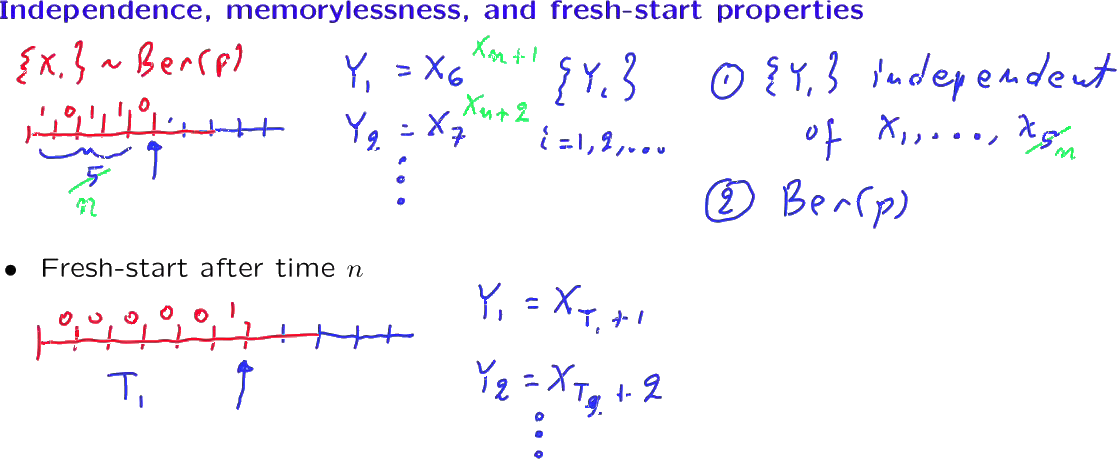 Independence, memorylessness, and fresh-start properties
{X_i} ~ Ber(p)
1 0 1 1 0
5 n
Y_1 = X_6 X_{n+1}
Y_2 = X_7 X_{n+2}
⋮
{Y_i}
i = 1, 2, ...
① {Y_i} independent
of X_1, ..., X_5 n
② Ber(p)
• Fresh-start after time n
0 0 0 0 0 1
T_1
Y_1 = X_{T_1 + 1}
Y_2 = X_{T_2 + 2}
⋮